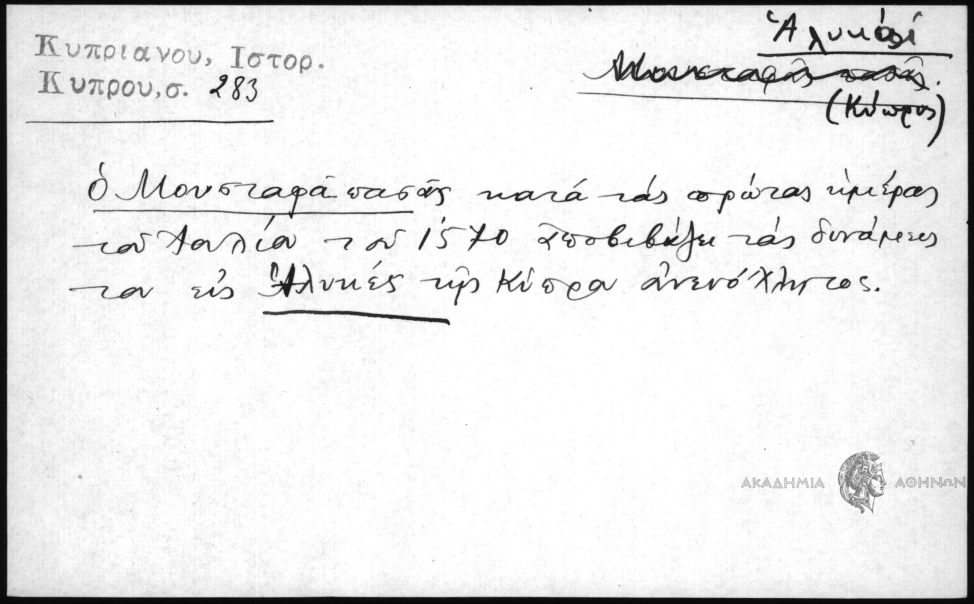 Κυπριανου, Ιστορ.
Κυπρου, σ. 283
Ἁλυκαί
Μουσταφᾶς πασᾶς.
(Κύπρος)
ὁ Μουσταφᾶ πασᾶς κατά τάς πρώτας ἡμέρας
τοῦ του 1570 ἀποβιβάζει τάς δυνάμεις
του εἰς Ἁλυκές τῆς Κύπρου ἀνενόχλητος.
ΑΚΑΔΗΜΙΑ ΑΘΗΝΩΝ